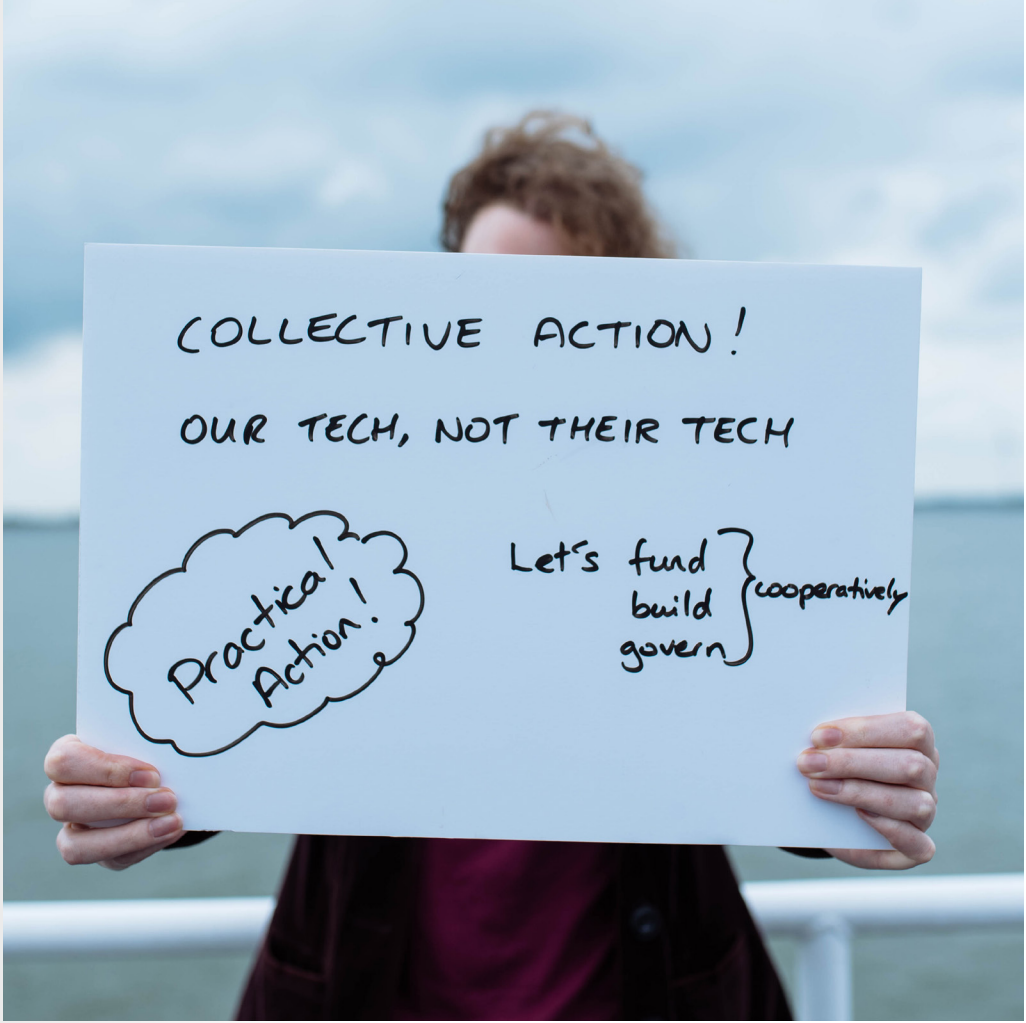 COLLECTIVE ACTION!
OUR TECH, NOT THEIR TECH
Practical
Action!
Let's fund
build
govern
cooperatively